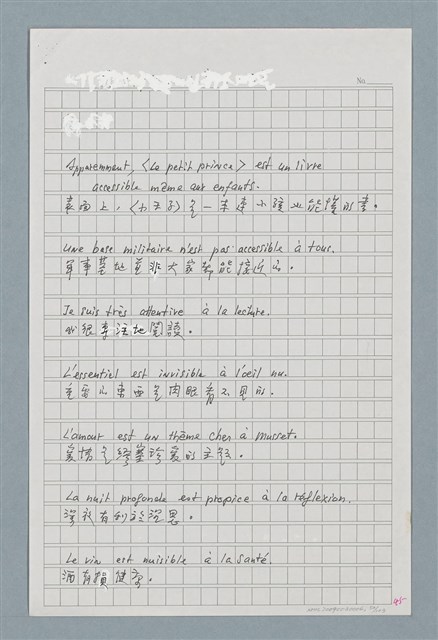 No.
Apparemment, <Le petit prince> est un livre
accessible même aux enfants.
表面上，<小王子>是一本連小孩也能讀的書。
Une base militaire n'est pas accessible à tous.
軍事基地並非大家都能接近的。
Je suis très attentive à la lecture.
我很專注地閱讀。
L'essentiel est invisible à l'oeil nu.
重要的東西是肉眼看不見的。
L'amour est un thème cher à Musset.
愛情是繆塞珍愛的主題。
La nuit profonde est propice à la réflexion.
深夜有利於沉思。
Le vin est nuisible à la santé.
酒有損健康。
45